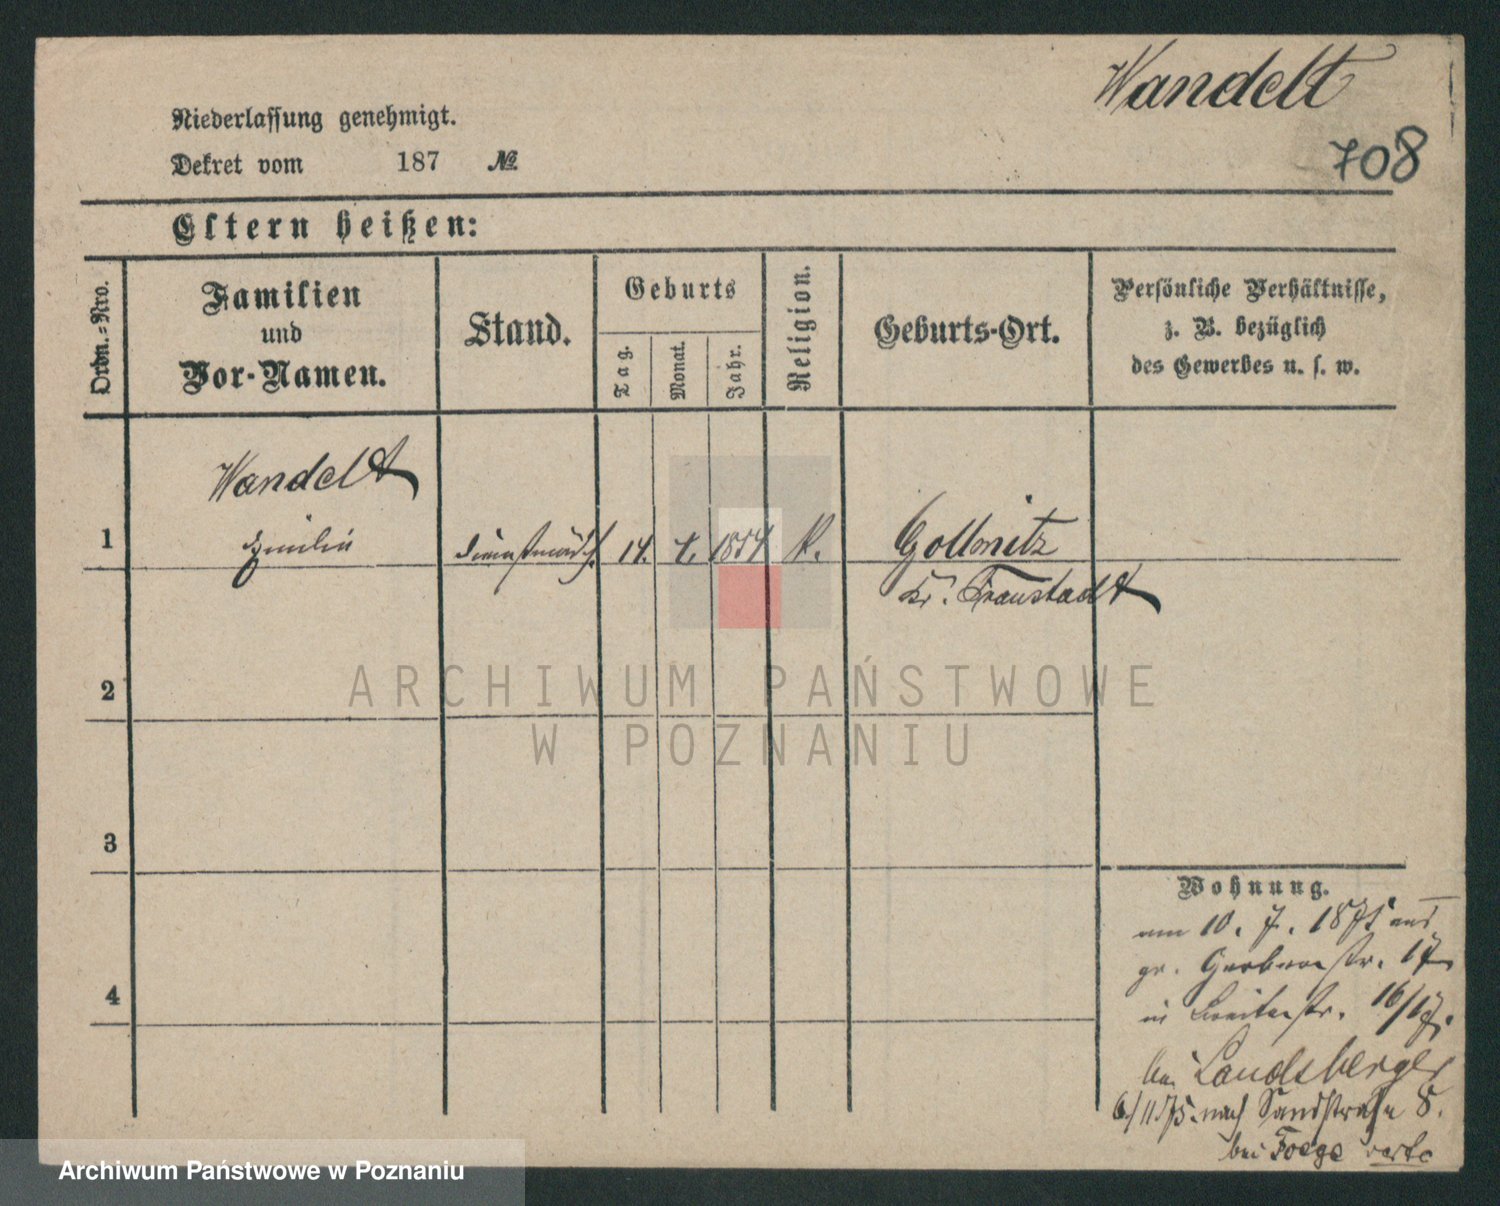 Wandelt
708
Niederlassung genehmigt.
Dekret vom 187 №
Eltern heißen:
Ordn.-Nro.
Familien
und
Vor-Namen.
Stand.
Geburts
Tag.
Monat.
Jahr.
Religion.
Geburts-Ort.
Persönliche Verhältnisse,
z. B. bezüglich
des Gewerbes u. s. w.
Wandelt
1 Emilie Dienstmädch. 14. 1854 k. Gollmitz
Kr. Fraustadt
2
3
4
Wohnung.
am 10. 7. 1875 aus
gr. Gerberstr. 17
in Breitestr. 16/17.
bei Landsberger
6/11 75. nach Sandstraße 8.
bei verte
ARCHIWUM PAŃSTWOWE
W POZNANIU
Archiwum Państwowe w Poznaniu